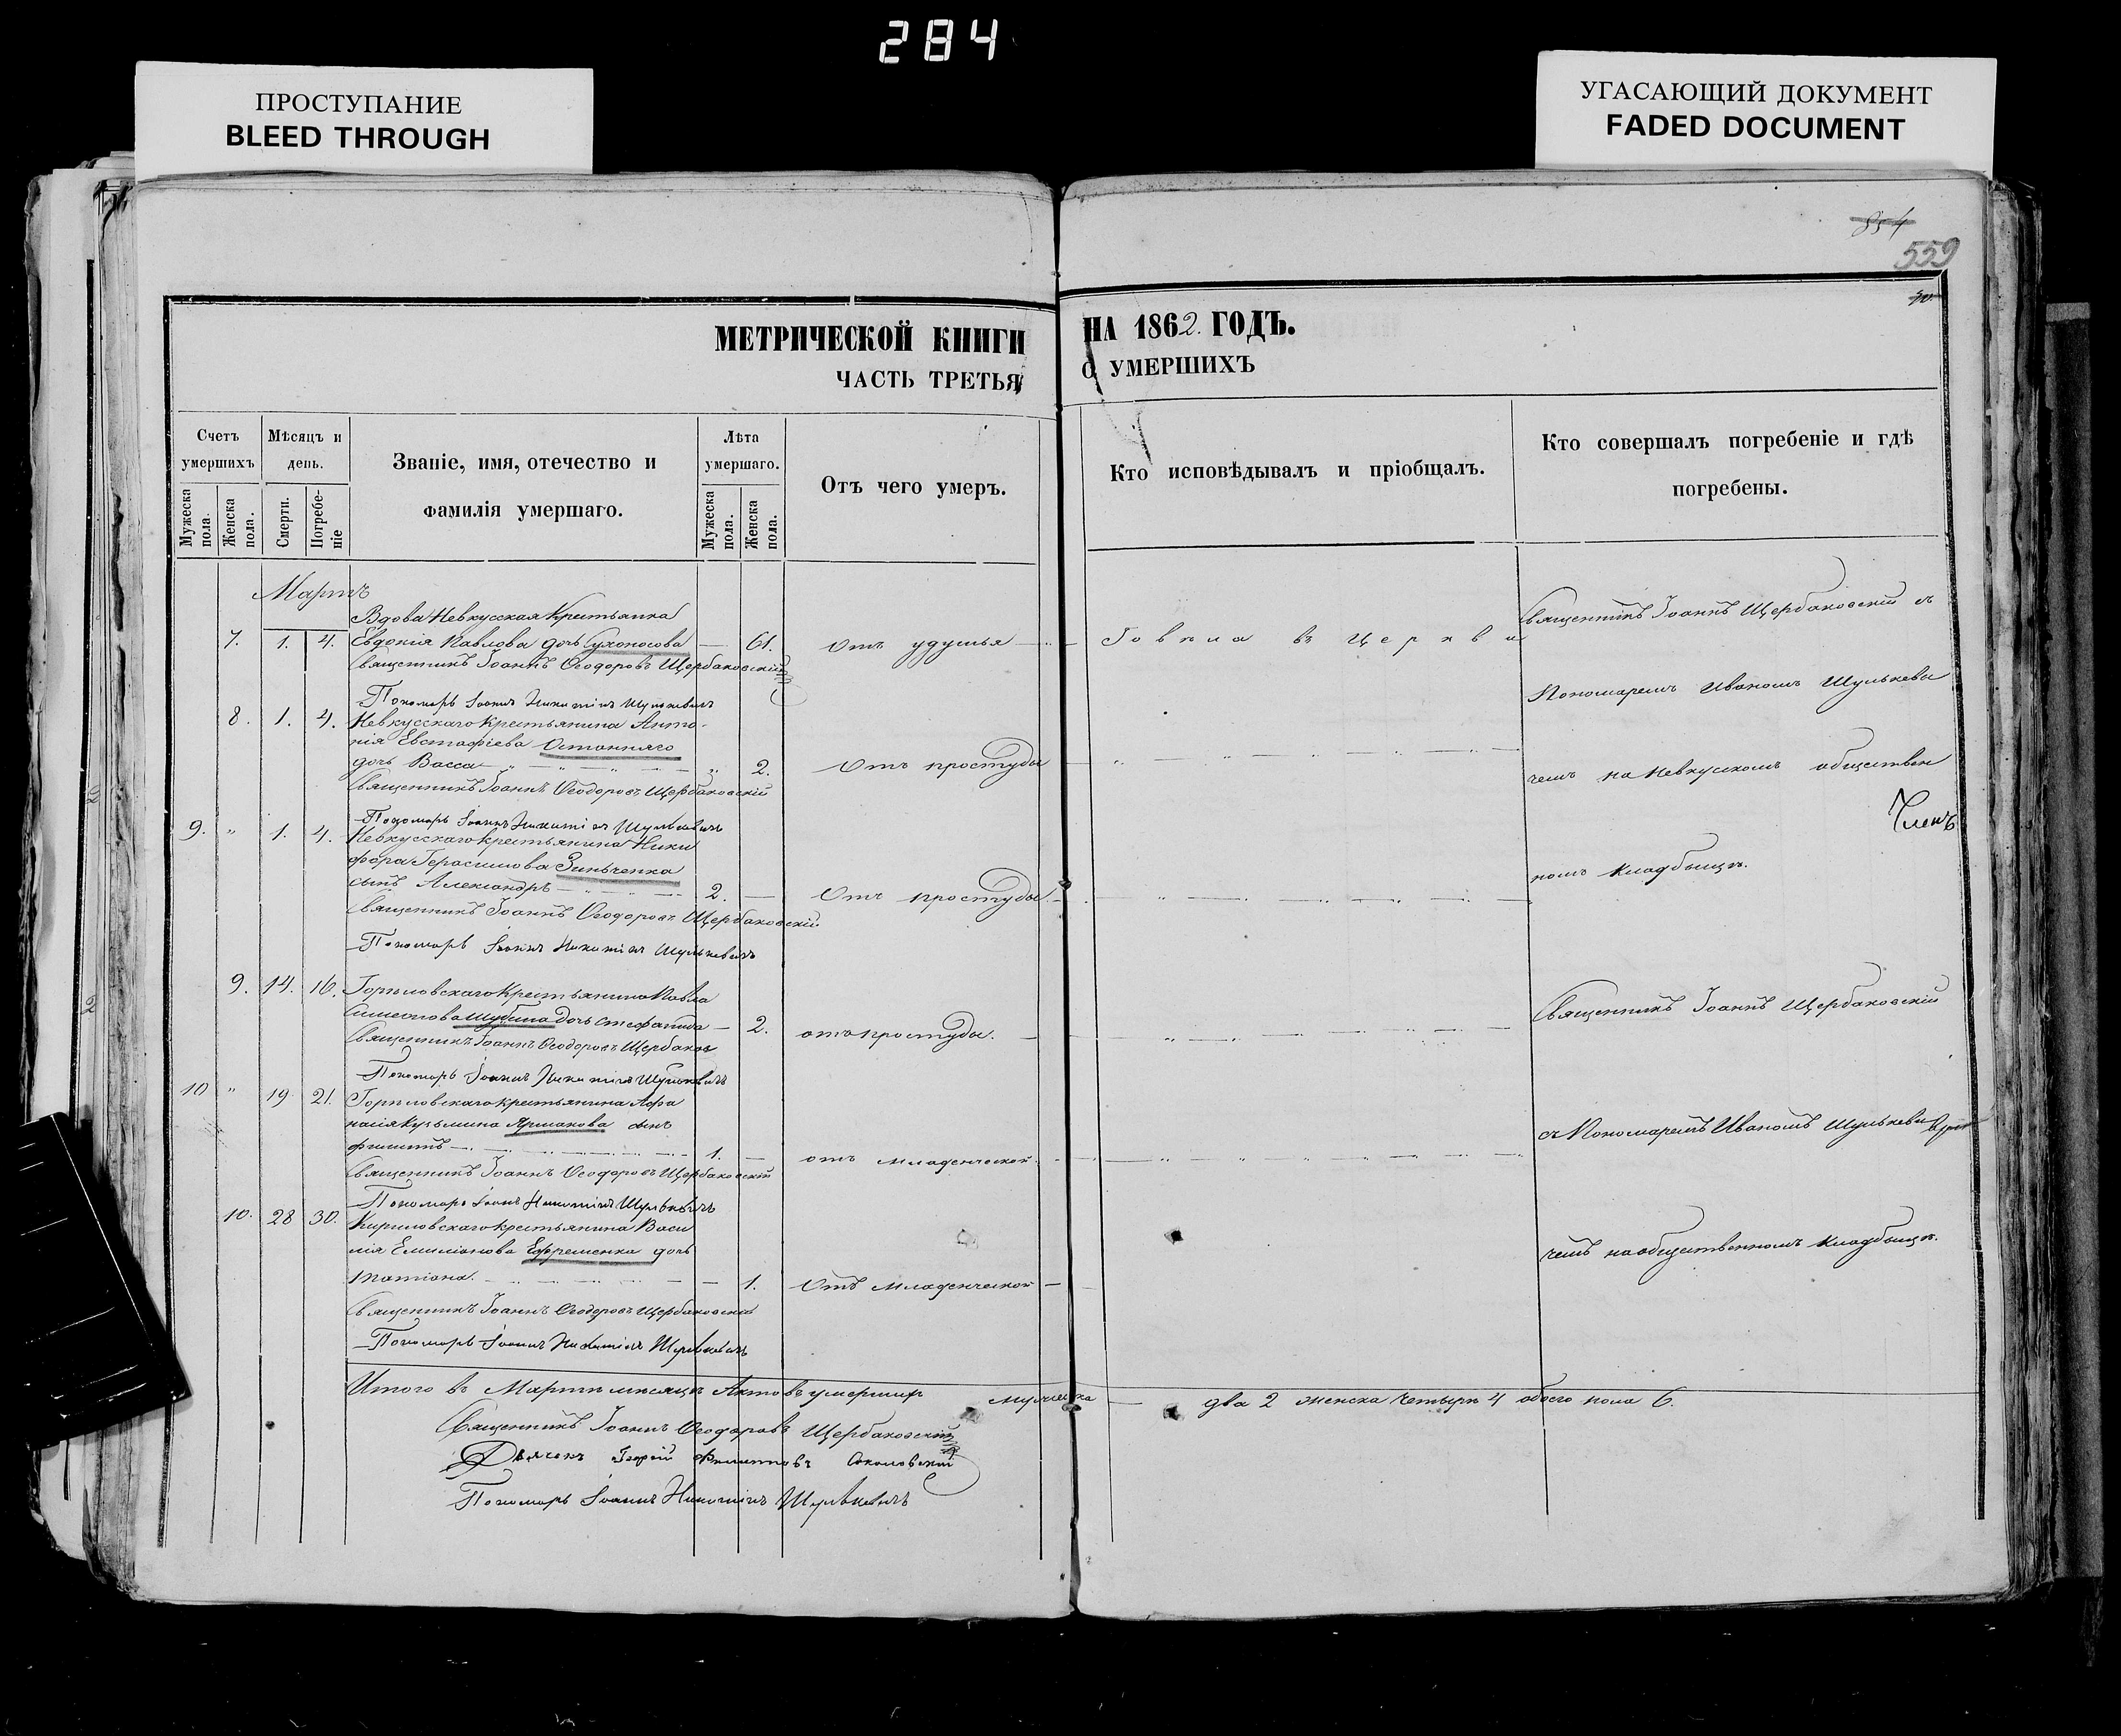 284
ПРОСТУПАНИЕ
BLEED THROUGH
УГАСАЮЩИЙ ДОКУМЕНТ
FADED DOCUMENT
854
559
МЕТРИЧЕСКОЙ КНИГИ НА 1862. ГОДЪ.
ЧАСТЬ ТРЕТЬЯ О УМЕРШИХЪ
Счетъ умершихъ
Мужеска пола.
Женска пола.
Мѣсяцъ и день.
Смерти.
Погребеніе
Званіе, имя, отечество и фамилія умершаго.
Лѣта умершаго.
Мужеска пола.
Женска пола.
Отъ чего умеръ.
Кто исповѣдывалъ и пріобщалъ.
Кто совершалъ погребеніе и гдѣ погребены.
Мартъ
Вдова Невкусская Крестьянка
7. 1. 4. Евдокія Павлова дочь Сухоносова — 61. Отъ удушья — Говѣла въ Церкви
Священникъ Іоаннъ Ѳеодоровъ Щербаковскій
Священникъ Іоаннъ Щербаковскій съ
Пономарь Іоаннъ Никитинъ Шулькевичъ
Пономаремъ Иваномъ Шулькеви
8. 1. 4. Невкусскаго Крестьянина Анто-
нія Евстафіева Останняго
дочь Васса — „ 2. Отъ простуды
чемъ на Невкусскомъ обществен
Священникъ Іоаннъ Ѳеодоровъ Щербаковскій
Пономарь Іоаннъ Никитинъ Шулькевичъ
Членъ
9. „ 1. 4. Невкусскаго Крестьянина Ники
фора Герасимова Зинченка
номъ кладбищѣ.
сынъ Александръ — 2. — Отъ простуды
Священникъ Іоаннъ Ѳеодоровъ Щербаковскій
Пономарь Іоаннъ Никитинъ Шулькевичъ
9. 14. 16. Горѣловскаго Крестьянина Павла
Шубина дочь Стефанида — 2. отъ простуды.
Священникъ Іоаннъ Щербаковскій
Священникъ Іоаннъ Ѳеодоровъ Щербаков
Пономарь Іоаннъ Никитинъ Шулькевичъ
10 „ 19. 21. Горѣловскаго крестьянина Афа
насія Кузьмина сынъ
съ Пономаремъ Иваномъ Шулькеви
Филиппъ — 1. — отъ младенческой.
Священникъ Іоаннъ Ѳеодоровъ Щербаковскій
Пономарь Іоаннъ Никитинъ Шулькевичъ
10. 28 30. Кириловскаго крестьянина Васи
лія Емиліанова Ефременка дочь
чемъ на общественномъ кладбищѣ.
Татіана. — 1. Отъ младенческой —
Священникъ Іоаннъ Ѳеодоровъ Щербаковскій
Пономарь Іоаннъ Никитинъ Шулькевичъ
Итого въ Мартѣ мѣсяцѣ Актовъ умершихъ мужеска — два 2 женска четыре 4 обоего пола 6.
Священникъ Іоаннъ Ѳеодоровъ Щербаковскій
Дьячекъ Георгій Филипповъ Соколовскій
Пономарь Іоаннъ Никитинъ Шулькевичъ